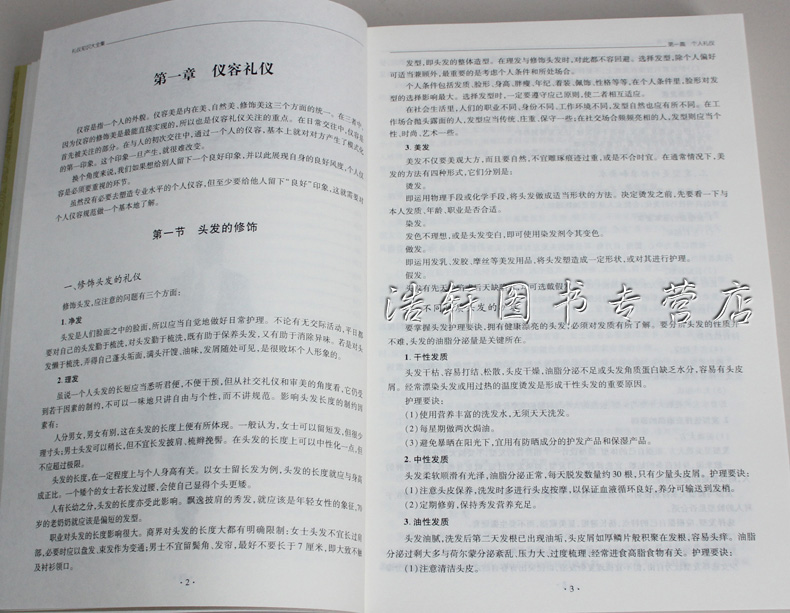 礼仪知识大全集
第一章 仪容礼仪
仪容是指一个人的外貌。仪容美是内在美、自然美、修饰美这三个方面的统一。在三者中
因为仪容的修饰美是最能直接实现的,所以也是仪容礼仪关注的重点。在日常交往中,仪容是
首先被关注的部分。在与人的初次交往中,通过一个人的仪容,基本上就对对方产生了模式化
的第一印象。这个印象一旦产生,就很难改变。
换个角度来说,我们如果想给别人留下一个良好印象,并以此展现自身的良好风度,个人仪
容是必须要重视的环节。
虽然没有必要去塑造专业水平的个人仪容,但至少要给他人留下“良好”印象,这就需要对
个人仪容规范做一个基本地了解。
第一节 头发的修饰
一、修饰头发的礼仪
修饰头发,应注意的问题有三个方面:
1. 净发
头发是人们脸面之中的脸面,所以应当自觉地做好日常护理。不论有无交际活动,平日都
要对自己的头发勤于梳洗,对头发勤于梳洗,既有助于保养头发,又有助于消除异味。若是对头
发懒于梳洗,弄得自己蓬头垢面,满头汗馊、油味,发屑随处可见,是很败坏个人形象的。
2. 理发
虽说一个人头发的长短应当悉听君便,不便干预,但从社交礼仪和审美的角度看,它仍受
到若干因素的制约,不可以一味地只讲自由与个性,而不讲规范。影响头发长度的制约因
素有:
人分男女,男女有别,这在头发的长度上便有所体现。一般认为,女士可以留短发,但很少
理寸头;男士头发可以稍长,但不宜长发披肩、梳辫挽髻。在头发的长度上可以中性化一点,但
不应超过极限。
头发的长度,在一定程度上与个人身高有关。以女士留长发为例,头发的长度就应与身高
成正比。一个矮个的女士若长发过腰,会使自己显得个头更矮。
人有长幼之分,头发的长度亦受此影响。飘逸披肩的秀发,就应该是年轻女性的象征,70
岁的老奶奶就应该是偏短的发型。
职业对头发的长度影响很大。商界对头发的长度大都有明确限制:女士头发不宜长过肩
部,必要时应以盘发、束发作为变通;男士不宜留鬓角、发帘,最好不要长于7厘米,即大致不触
及衬衫领口。
· 2 ·
第一章 个人礼仪
发型,即头发的整体造型。在理发与修饰头发时,对此都不容回避。选择发型,除个人偏好
可适当兼顾外,最重要的是考虑个人条件和所处场合。
个人条件包括发质、脸形、身高、胖瘦、年纪、着装、佩饰、性格等等,在个人条件里,脸形对发
型的选择影响最大。选择发型时,一定要遵守应己原则,使二者相互适应。
在社会生活里,人们的职业不同、身份不同、工作环境不同,发型自然也应有所不同。在工
作场合抛头露面的人,发型应当传统、庄重、保守一些;在社交场合频频亮相的人,发型则应当个
性、时尚、艺术一些。
3. 美发
美发不仅要美观大方,而且要自然,不宜雕琢痕迹过重,或是不合时宜。在通常情况下,美
发的方法有四种形式,它们分别是:
烫发。
即运用物理手段或化学手段,将头发做成适当形状的方法。决定烫发之前,先要看一下与
本人发质、年龄、职业是否合适。
染发。
发色不理想,或是头发变白,即可使用染发剂令其变色。
做发。
即运用发乳、发胶、摩丝等美发用品,将头发塑造成一定形状,或对其进行护理。
假发。
浩轩图书专营店
要掌握头发护理要诀,拥有健康漂亮的头发,必须对发质有所了解。要分清头发的性质并
不难,头发的油脂分泌量是关键所在。
1. 干性发质
头发干枯、容易打结、松散,头皮干燥,油脂分泌不足或头发角质蛋白缺乏水分,容易有头皮
屑。经常漂染头发或用过热的温度烫发是形成干性头发的重要原因。
护理要诀:
(1)使用营养丰富的洗发水,无须天天洗发。
(2)每星期做两次焗油。
(3)避免暴晒在阳光下,宜用有防晒成分的护发产品和保湿产品。
2. 中性发质
头发柔软顺滑有光泽,油脂分泌正常,每天脱发数量约30根,只有少量头皮屑。护理要诀:
(1)注意头皮保养,洗发时多进行头皮按摩,以保证血液循环良好,养分可输送到发梢。
(2)定期修剪,保持秀发营养充足。
3. 油性发质
头发油腻,洗发后第二天发根已出现油垢,头皮屑如厚鳞片般积聚在发根,容易头痒。油脂
分泌过剩大多与荷尔蒙分泌紊乱、压力大、过度梳理、经常进食高脂食物有关。护理要诀:
(1)注意清洁头皮。
· 3 ·